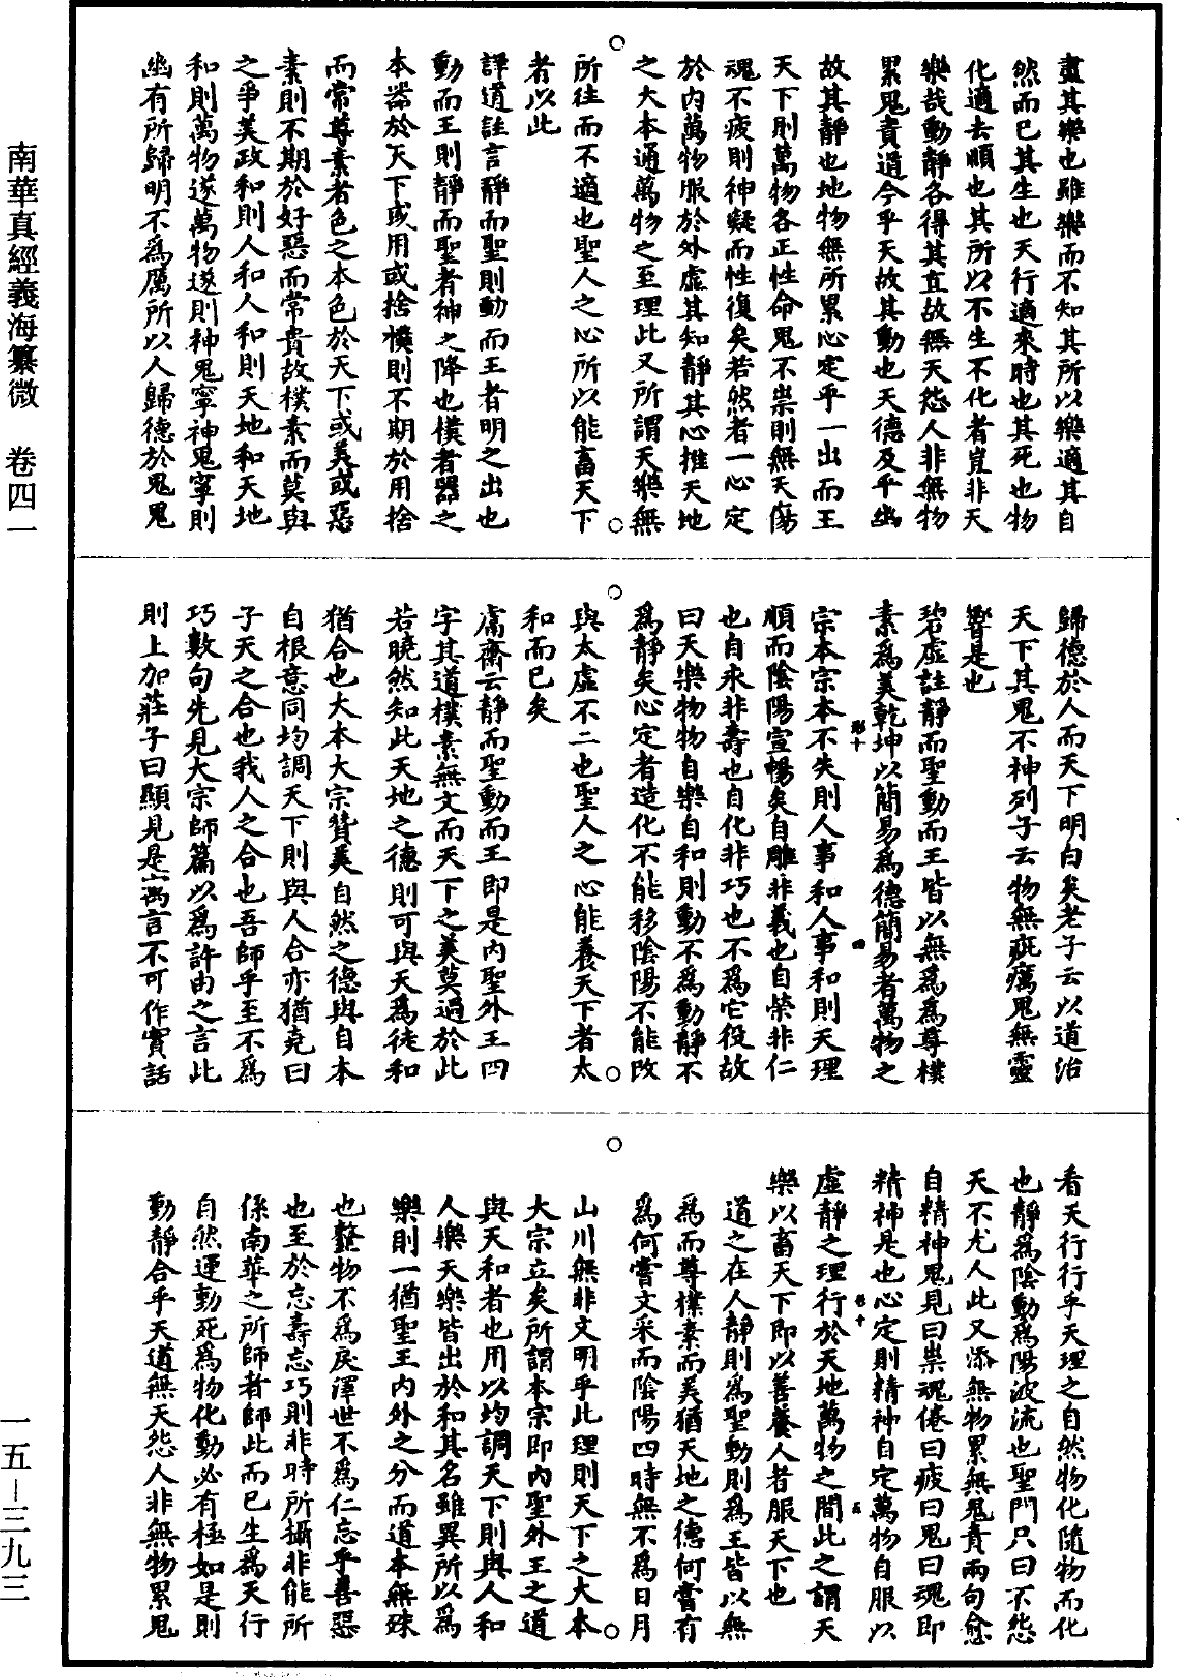 南華真經義海纂微 卷四一
一五—三九三
盡其樂也雖樂而不知其所以樂適其自
然而已其生也天行適來時也其死也物
化適去順也其所以不生不化者豈非天
樂哉動靜各得其宜故無天怨人非無物
累鬼責過今乎天故其動也天德及乎幽
故其靜也地物無所累心定乎一出而王
天下則萬物各正性命鬼不祟則無天傷
魂不疲則神凝而性復矣若然者一心定
於內萬物服於外虛其知靜其心推天地
之大本通萬物之至理此又所謂天樂無
所往而不適也聖人之心所以能畜天下
者以此
詳道註言靜而聖則動而王者明之出也
動而王則靜而聖者神之降也樸者器之
本器於天下或用或捨樸則不期於用捨
而常尊素者色之本色於天下或美或惡
素則不期於好惡而常貴故樸素而莫與
之爭美政和則人和人和則天地和天地
和則萬物遂萬物遂則神鬼寧神鬼寧則
幽有所歸明不為厲所以人歸德於鬼鬼
歸德於人而天下明白矣老子云以道治
天下其鬼不神列子云物無疵癘鬼無靈
響是也
碧虛註靜而聖動而王皆以無為為尊樸
素為美乾坤以簡易為德簡易者萬物之
宗本宗本不失則人事和人事和則天理
順而陰陽宣暢矣自雕非義也自榮非仁
也自來非壽也自化非巧也不為它役故
曰天樂物物自樂自和則動不為動靜不
為靜矣心定者造化不能移陰陽不能改
與太虛不二也聖人之心能養天下者太
和而已矣
鬳齋云靜而聖動而王即是內聖外王四
字其道樸素無文而天下之美莫過於此
若曉然知此天地之德則可與天為徒和
猶合也大本大宗贊美自然之德與自本
自根意同均調天下則與人合亦猶堯曰
子天之合也我人之合也吾師乎至不為
巧數句先見大宗師篇以為許由之言此
則上加莊子曰顯見是寓言不可作實話
看天行行乎天理之自然物化隨物而化
也靜為陰動為陽波流也聖門只曰不怨
天不尤人此又添無物累無鬼責兩句愈
自精神鬼見曰祟魂倦曰疲曰鬼曰魂即
精神是也心定則精神自定萬物自服以
虛靜之理行於天地萬物之間此之謂天
樂以畜天下即以善養人者服天下也
道之在人靜則為聖動則為王皆以無
為而尊樸素而美猶天地之德何嘗有
為何嘗文采而陰陽四時無不為日月
山川無非文明乎此理則天下之大本
大宗立矣所謂本宗即內聖外王之道
與天和者也用以均調天下則與人和
人樂天樂皆出於和其名雖異所以為
樂則一猶聖王內外之分而道本無殊
也韲物不為戾澤世不為仁忘乎善惡
也至於忘壽忘巧則非時所攝非能所
係南華之所師者師此而已生為天行
自然運動死為物化動必有極如是則
動靜合乎天道無天怨人非無物累鬼